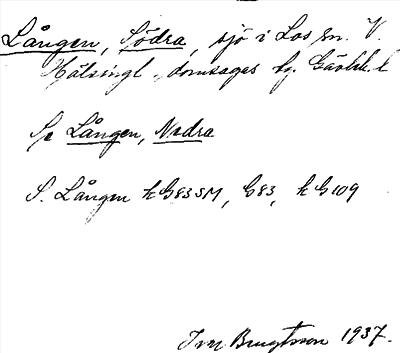 Lången, Södra, sjö i Los sn. V.
Hälsingl. domsagas tg. Gävleb. l
Se Lången, Norra
S. Lången kG83SM, G83, kG109
Bengtsson 1937.